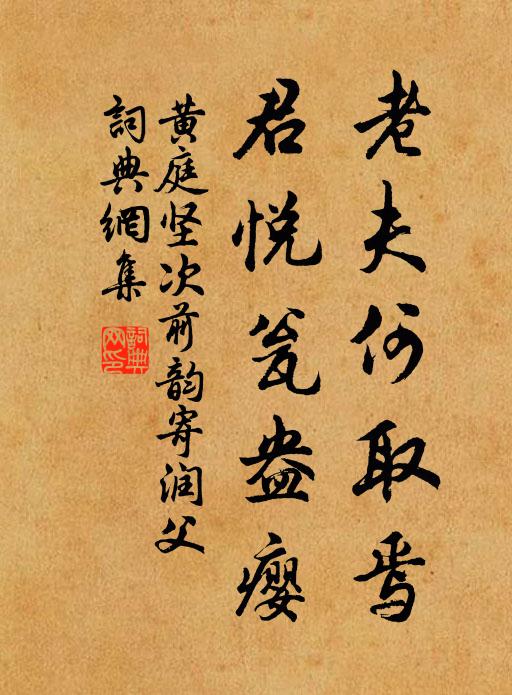 老夫何取焉
君悦瓮盎瘿
黄庭坚次前韵寄润父
詞典網集
詞典
网印